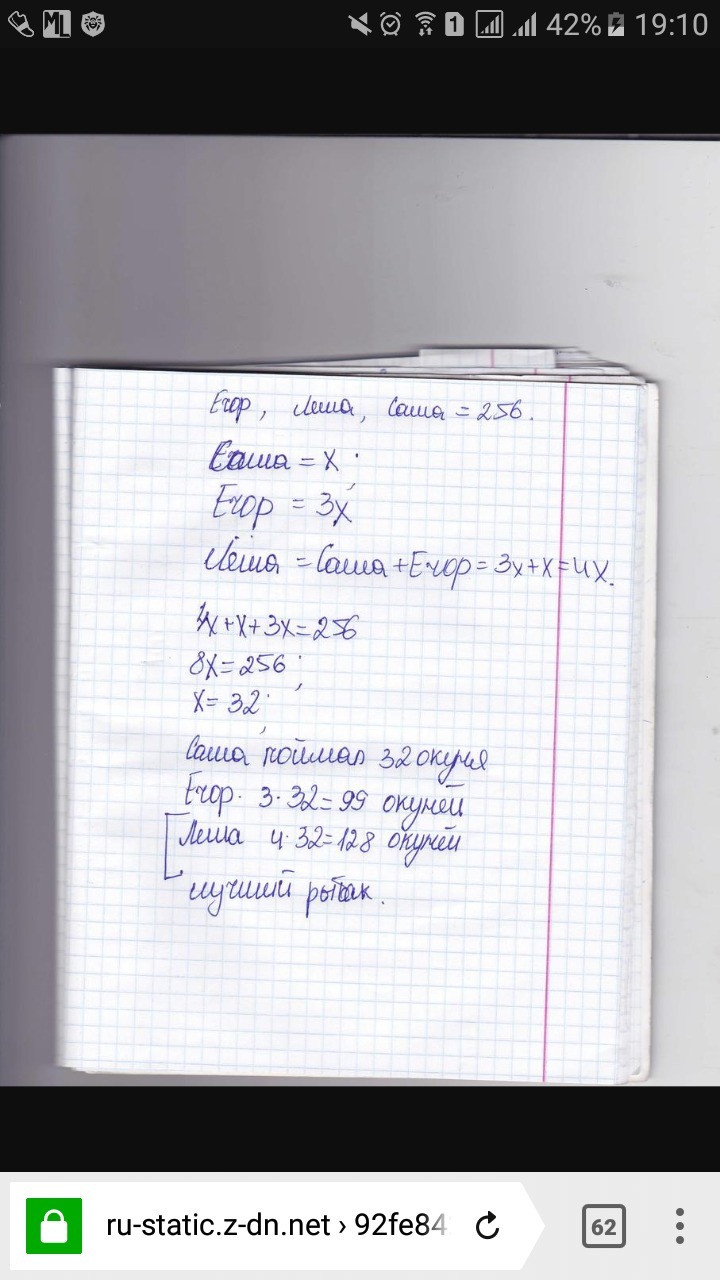 ML
1 42% 19:10
Егор, Леша, Саша = 256.
Саша = x;
Егор = 3x
Лёша = Саша + Егор = 3x+x=4x.
4x+x+3x=256
8x=256;
x= 32;
Саша поймал 32 окуня
Егор. 3·32=99 окуней
Леша 4·32=128 окуней
лучший рыбак.
ru-static.z-dn.net › 92fe84
62